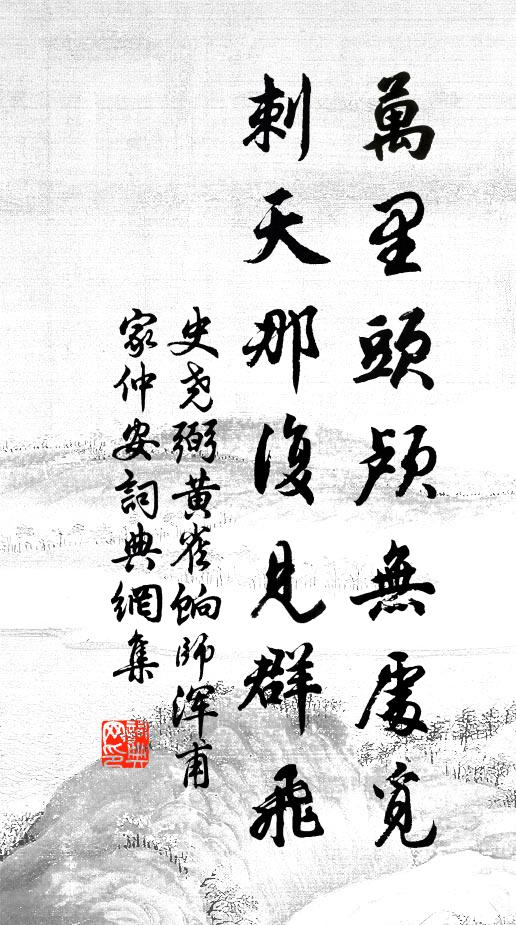 萬里頭顱無處覓
刺天那復見群飛
史尧弼黄雀餉師渾甫
家仲安詞典網集
詞典網印